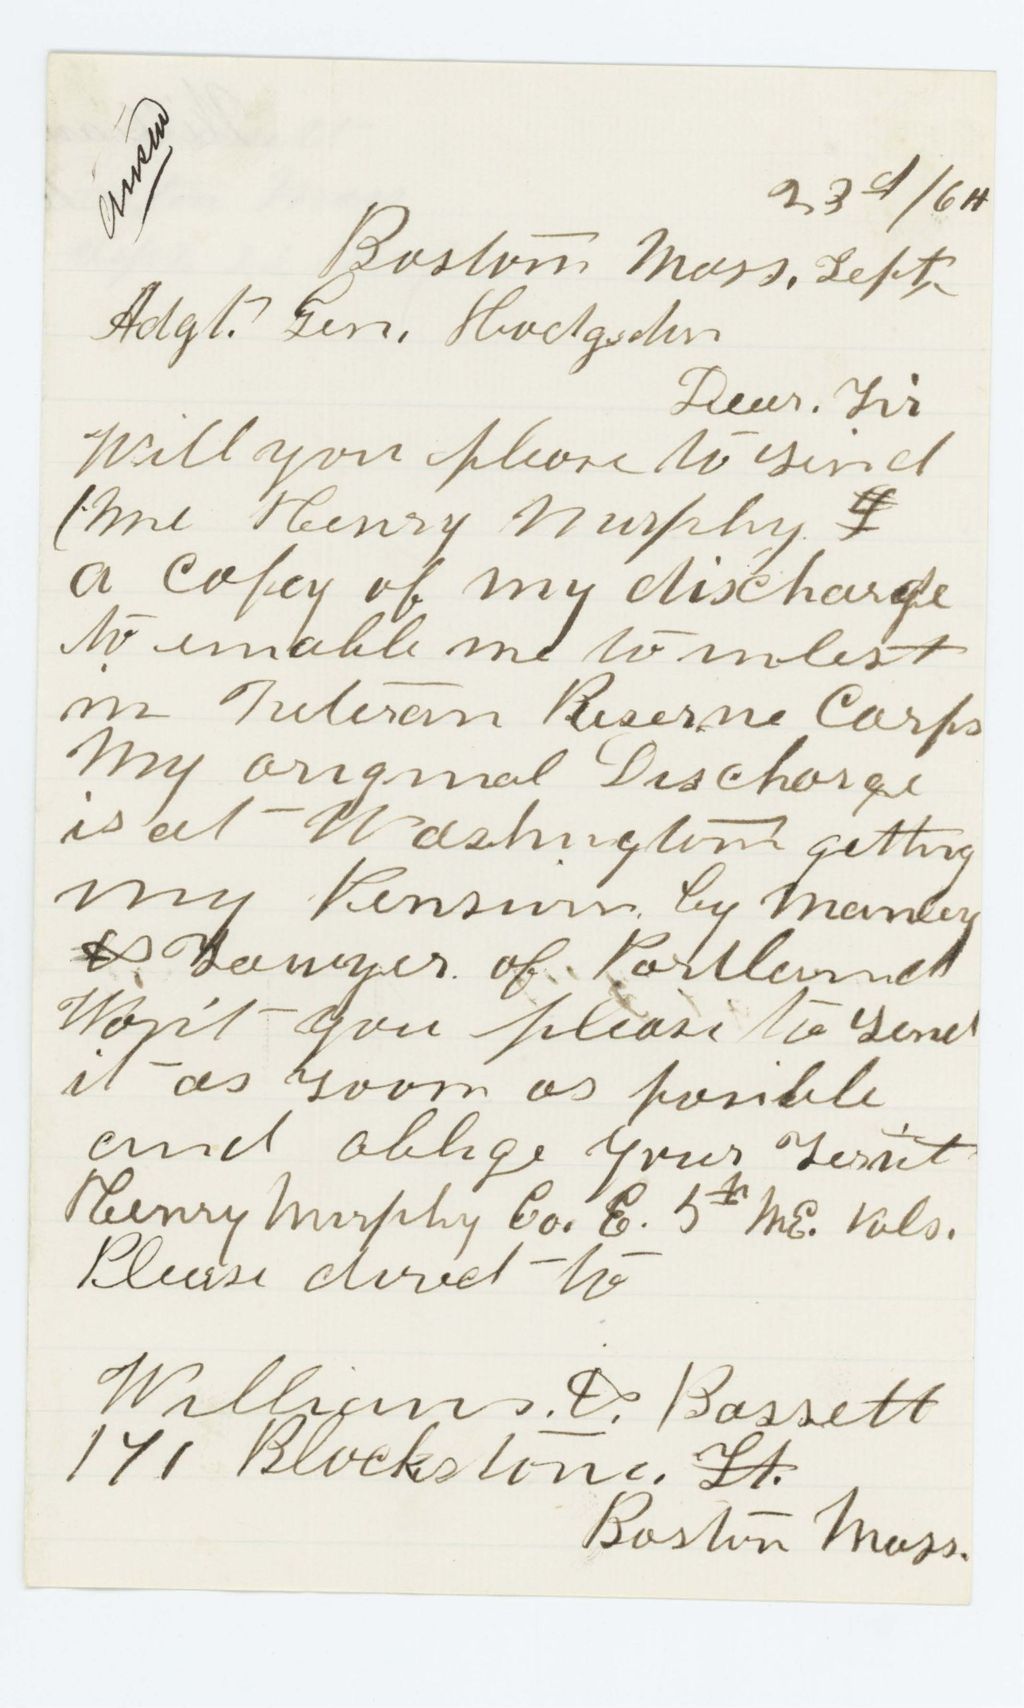 answd
23d/64
Boston Mass. Sept.
Adgt. Gen. Hodgsdon
Dear. Sir
Will you please to send
(me Henry Murphy
a Copey of my discharge
to enable me to inlest
in Veteran Reserve Corps
My original Discharge
is at Washington getting
my Pension by Manley
& Sawyer of Portland
Won't you please to send
it as soon as posible
and oblige your Servt
Henry Murphy Co. E. 5th ME. Vols.
Please direct to
William. D. Bassett
171 Blackstone. St.
Boston Mass.